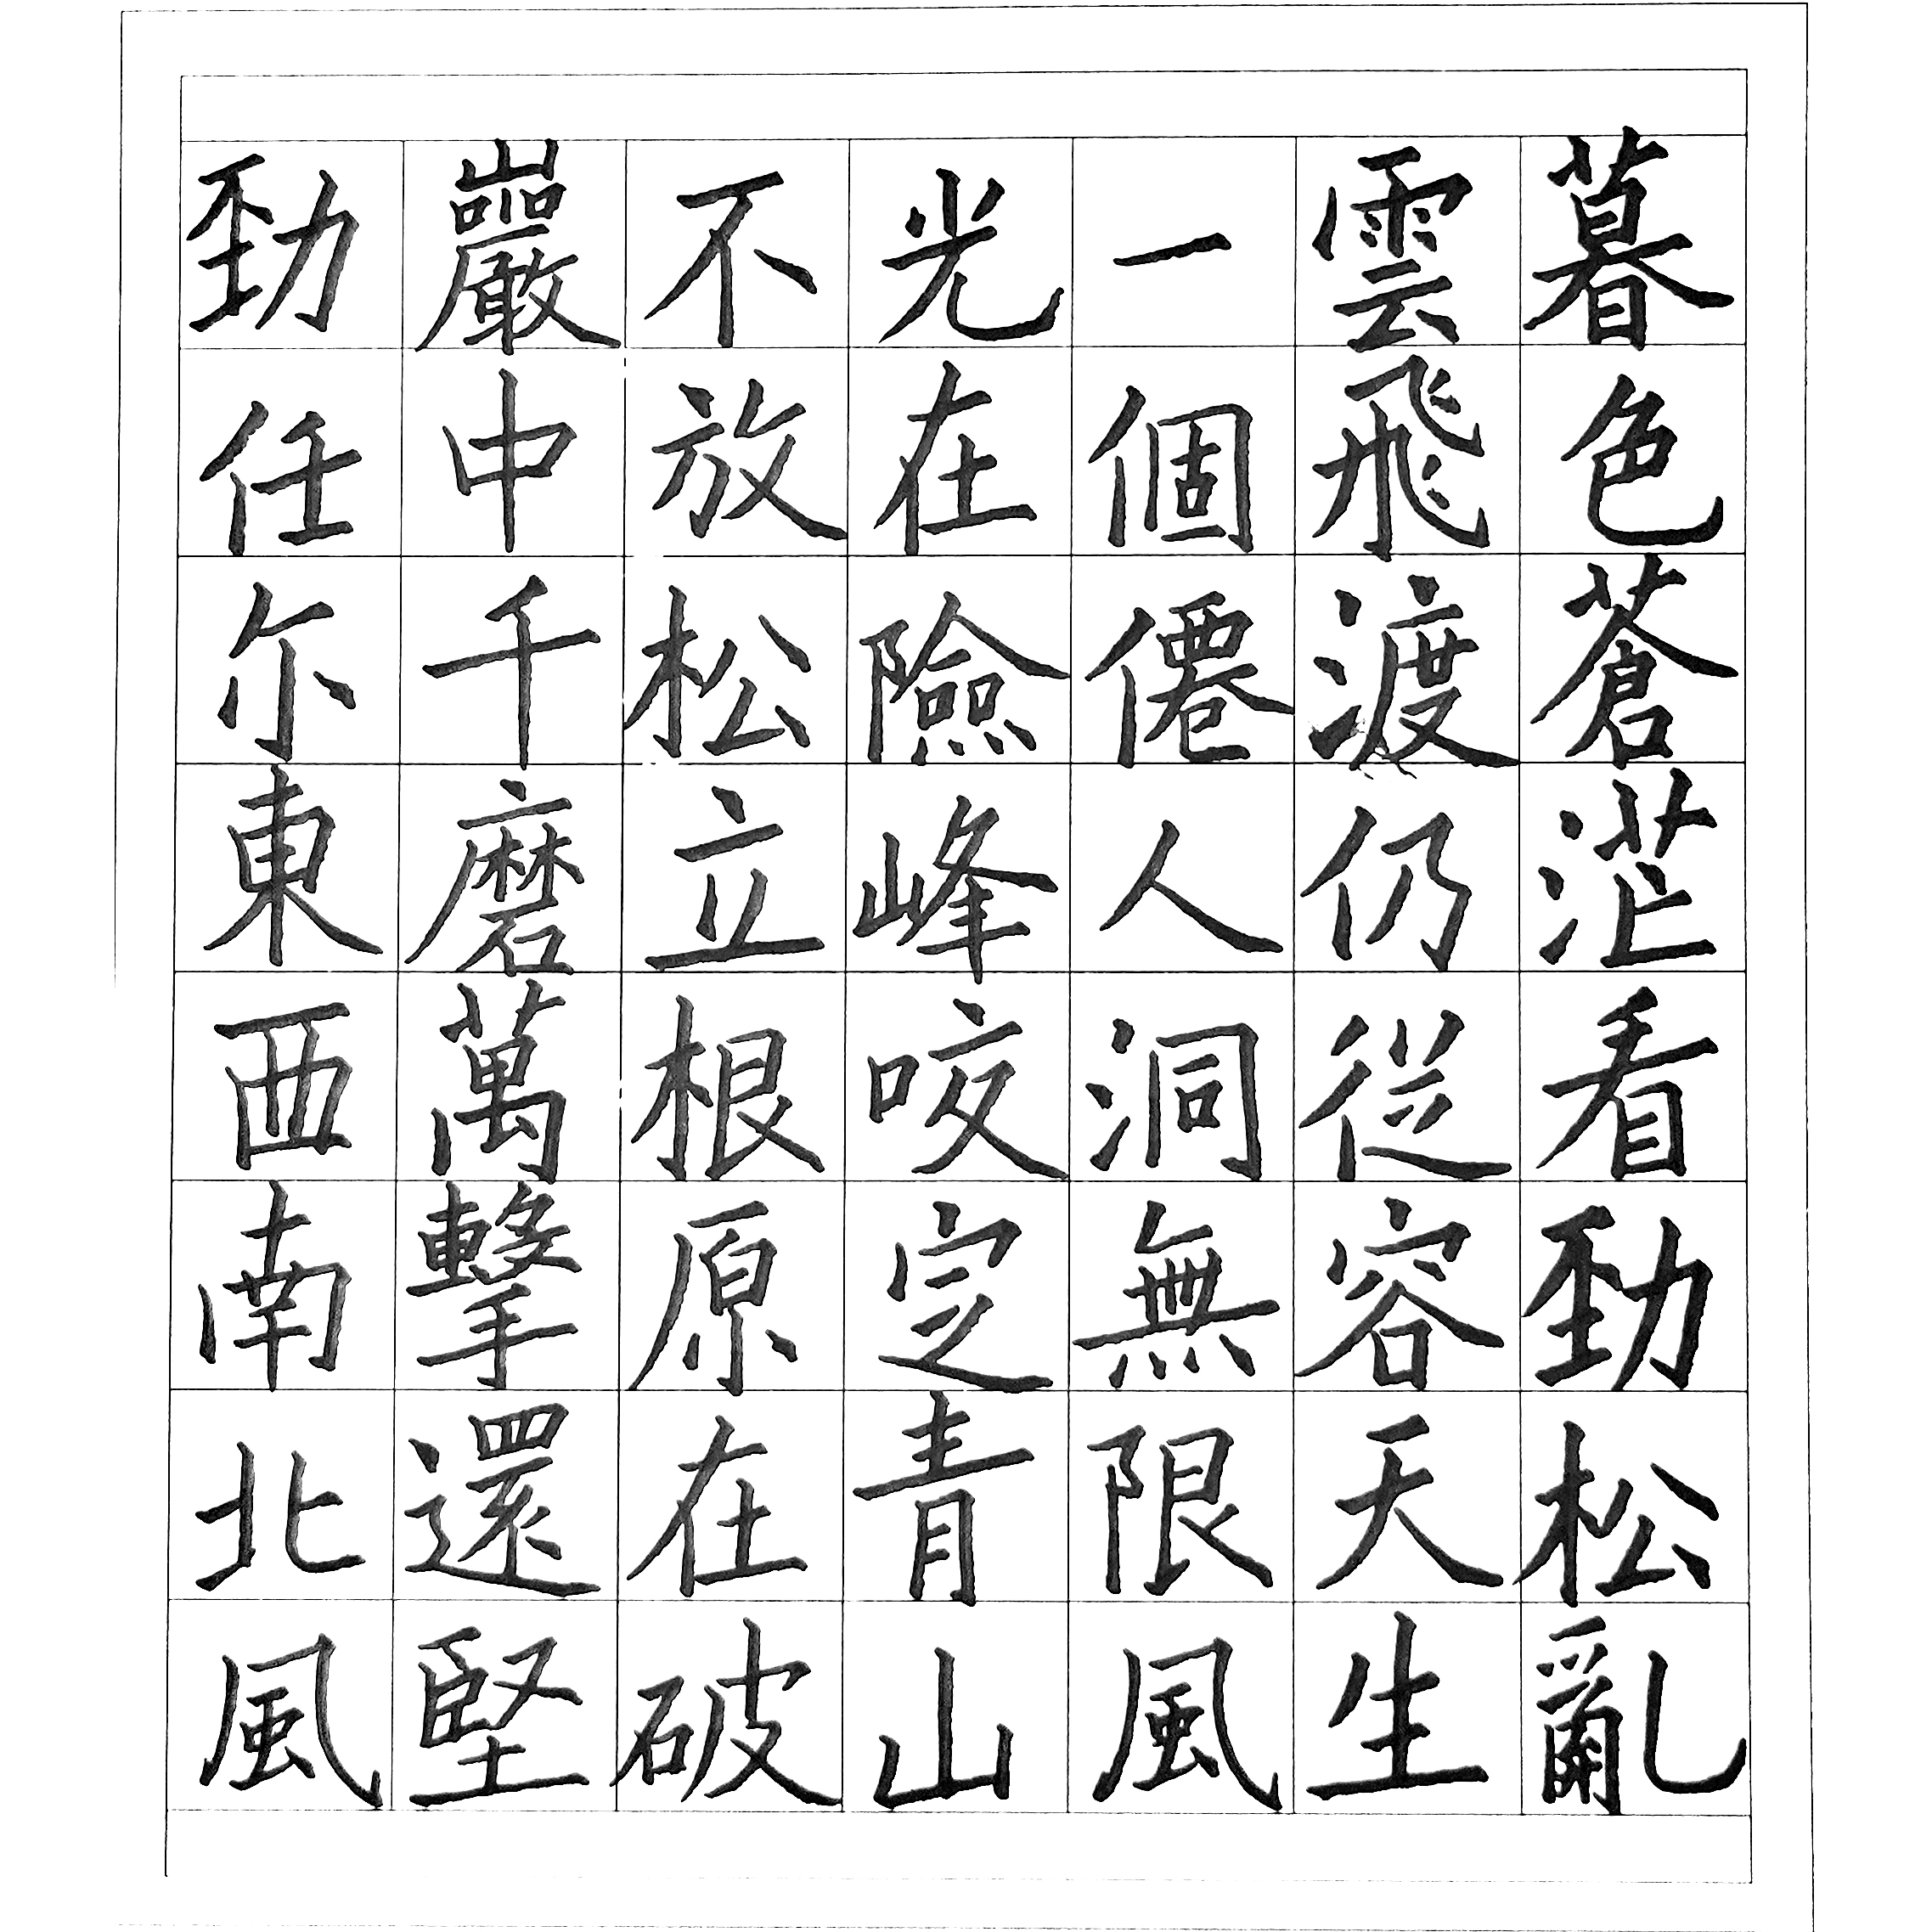 暮色蒼茫看勁松亂
雲飛渡仍從容天生
一個僊人洞無限風
光在險峰咬定青山
不放松立根原在破
巖中千磨萬擊還堅
勁任尔東西南北風